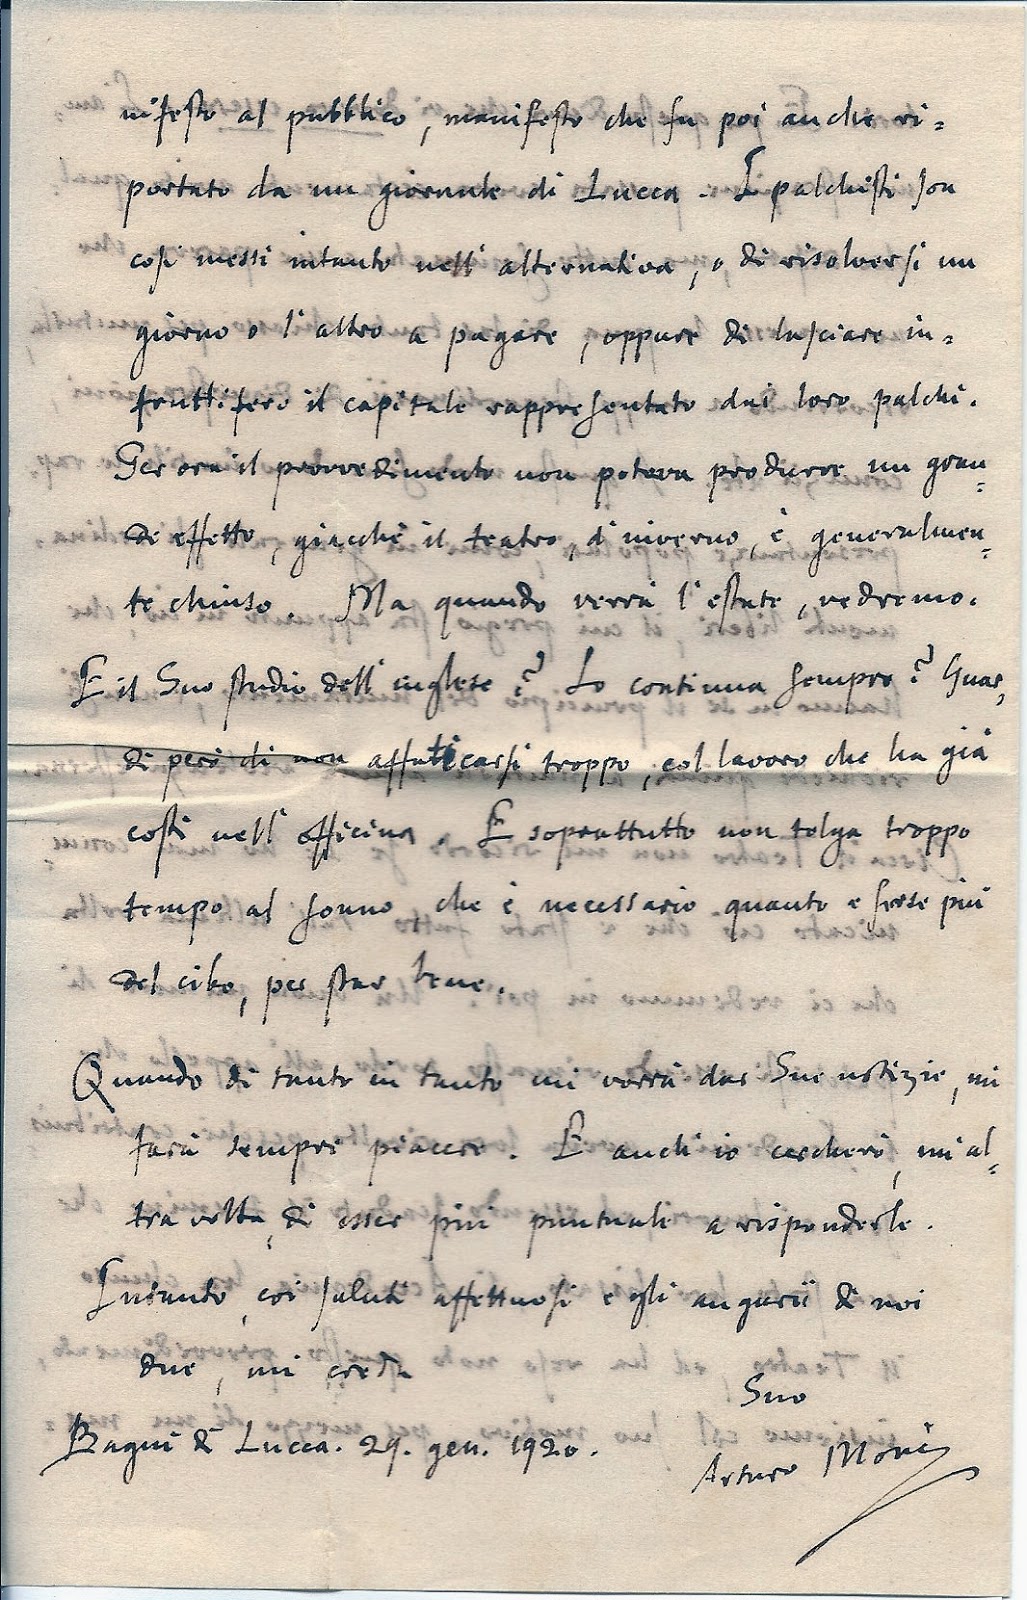 nifesto al pubblico, manifesto che fu poi anche ri=
portato da un giornale di Lucca. I palchisti son
così messi intanto nell'alternativa, o di risolversi un
giorno o l'altro a pagare, oppure di lasciare in=
fruttifero il capitale rappresentato dai loro palchi.
Per ora il provvedimento non poteva produrre un gran=
de effetto, giacchè il teatro, d'inverno, è generalmen=
te chiuso. Ma quando verrà l'estate, vedremo.
E il Suo studio dell'inglese? Lo continua sempre? Guar=
di però di non affaticarsi troppo, col lavoro che ha già
costì nell'officina. E soprattutto non tolga troppo
tempo al sonno che è necessario quanto e forse più
del cibo, per star bene.
Quando di tanto in tanto mi vorrà dar Sue notizie, mi
farà sempre piacere. E anch'io cercherò, un'al=
tra volta, di esser più puntuale a risponderle.
Intanto, coi saluti affettuosi e gli augurii di noi
due, mi creda
Suo
Bagni di Lucca. 29. gen. 1920.
Arturo